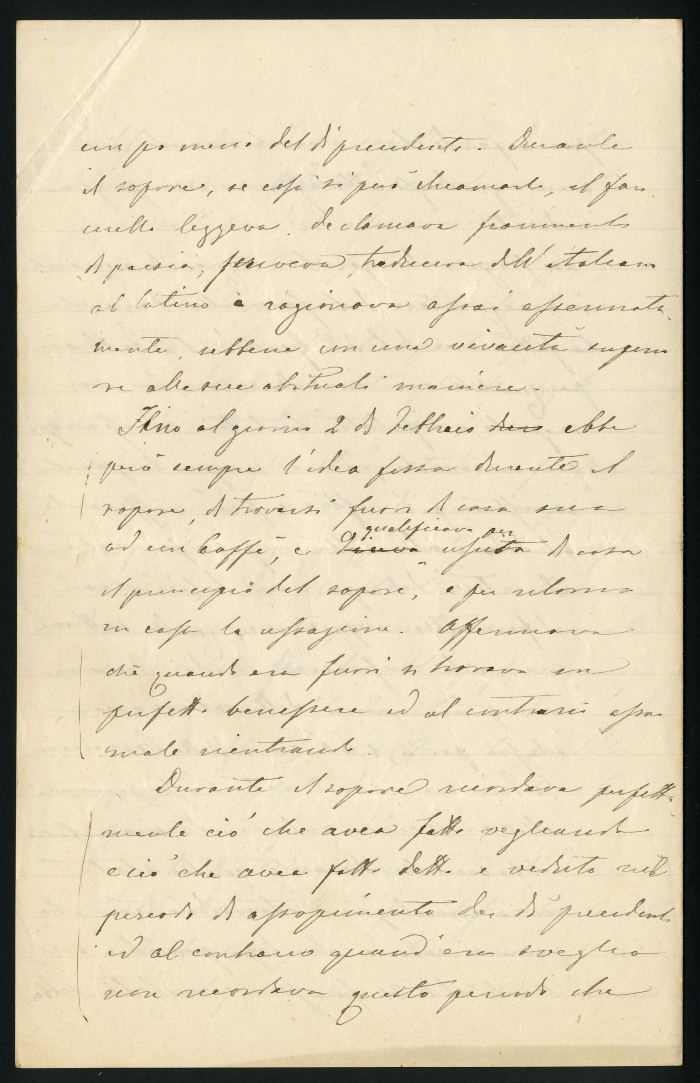 un po meno del dì precedente. Durante
il sopore, se così si può chiamarlo, il fan
ciullo leggeva, declamava frammenti
di poesia, scriveva, traduceva dall'italiano
al latino e ragionava assai assennata-
mente, sebbene con una vivacità superio
re alle sue abituali maniere.
Fino al giorno 2 di Febbraio ebbe
però sempre l'idea fissa durante il
sopore, di trovarsi fuori di casa sua
ad un Caffè, e diceva qualificava per uscita di casa
il principio del sopore, e per ritorno
in casa la cessazione. Affermava
che quando era fuori si trovava in
perfetto benessere ed al contrario assai
male rientrando
Durante il sopore ricordava perfetta-
mente ciò che avea fatto vegliando
e ciò che avea fatto detto e veduto nel
periodo di assopimento dei dì precedenti
ed al contrario quand'era sveglio
non ricordava questo periodo che